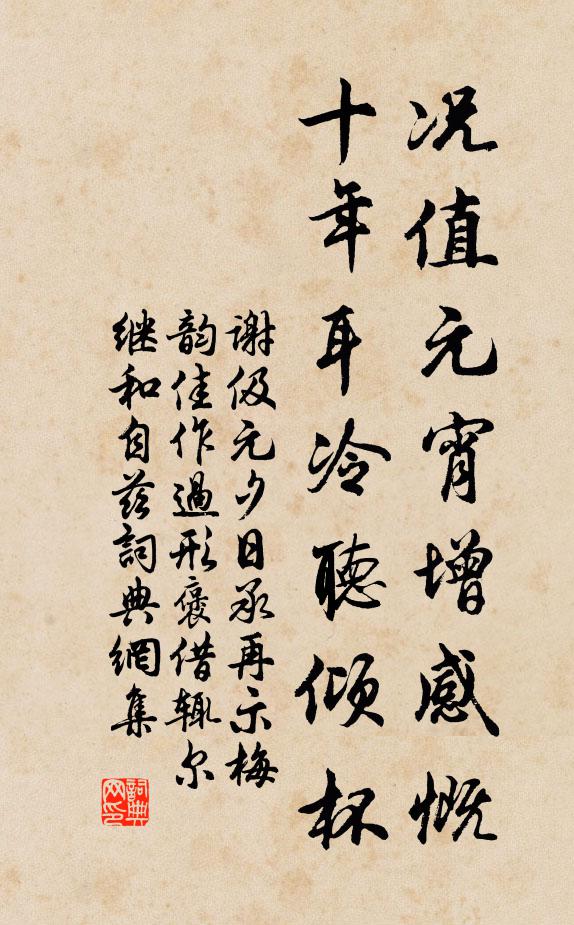 况值元宵增感慨
十年耳冷聽倾杯
谢伋元夕日承再示梅
韵佳作過形褒借辄尔
继和自兹詞典網集
詞典网印